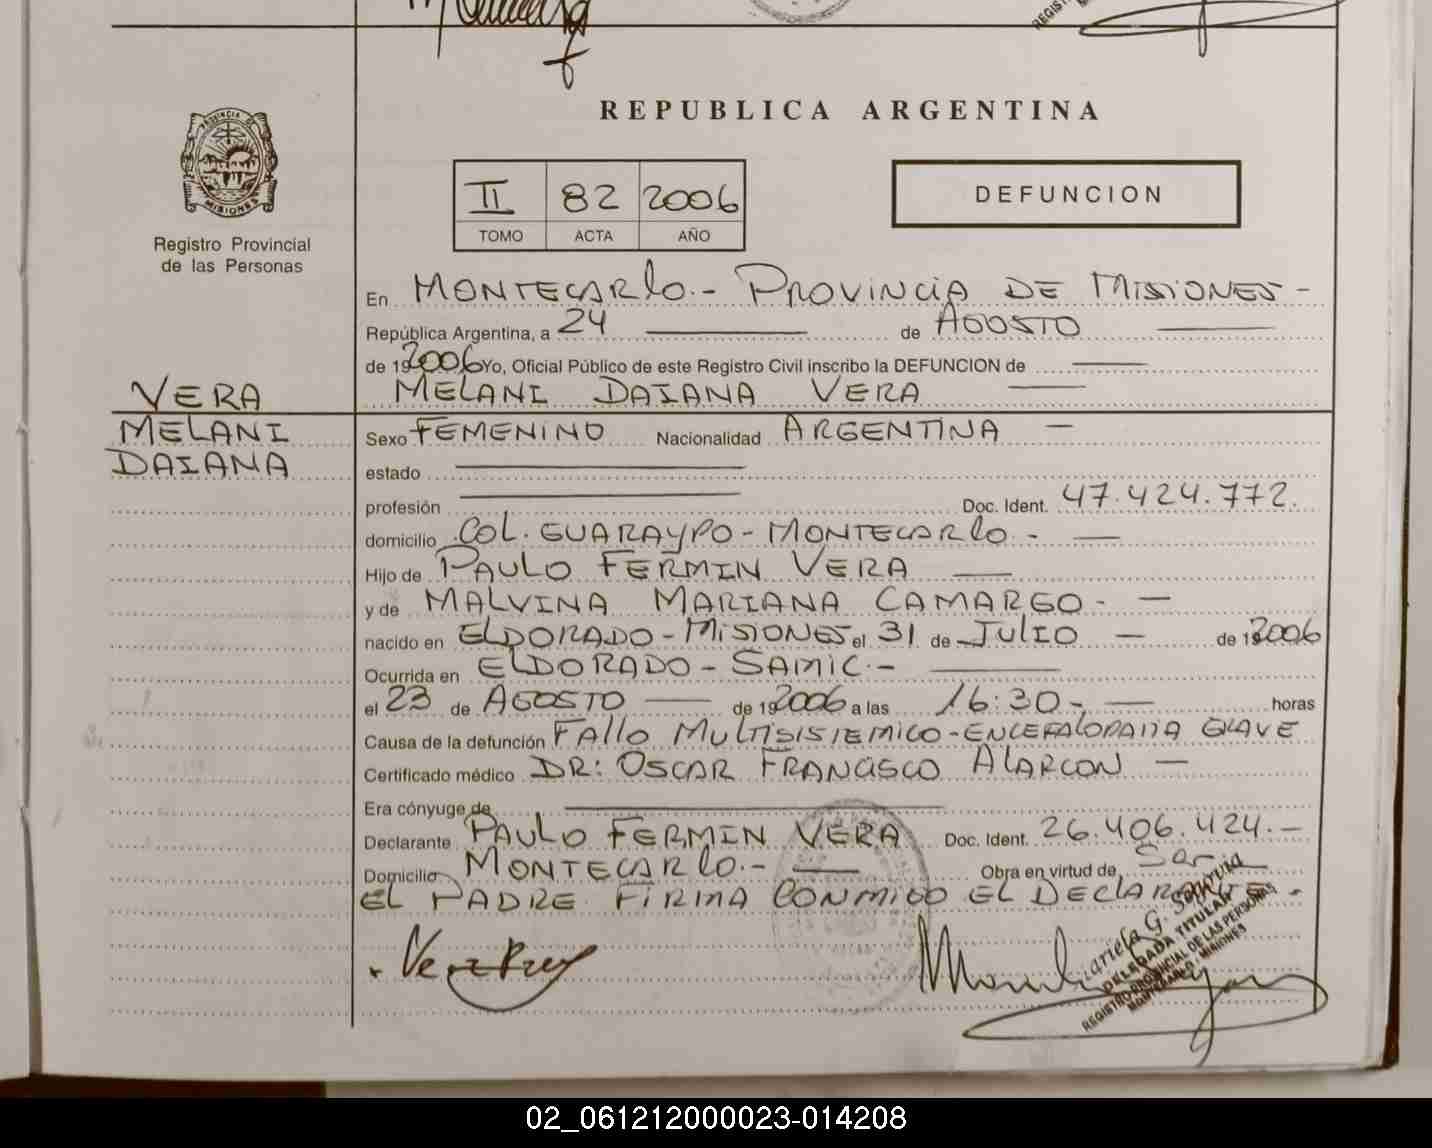 REPUBLICA ARGENTINA
PROVINCIA DE
MISIONES
Registro Provincial
de las Personas
II 82 2006
TOMO ACTA AÑO
DEFUNCION
En MONTECARlO.- PROVINCIA DE MISIONES-
República Argentina, a 24 de AGOSTO
de 192006 Yo, Oficial Público de este Registro Civil inscribo la DEFUNCION de
MELANI DAIANA VERA
VERA
MELANI
DAIANA
Sexo FEMENINO Nacionalidad ARGENTINA —
estado
profesión Doc. Ident. 47.424.772.
domicilio COL. GUARAYPO - MONTECARlO.- —
Hijo de PAULO FERMIN VERA —
y de MALVINA MARIANA CAMARGO- —
nacido en ELDORADO-MISIONES el 31 de JULIO — de 192006
Ocurrida en ELDORADO - SAMIC.-
el 23 de AGOSTO — de 192006 a las 16:30.- — horas
Causa de la defunción FAllO MULTISISTEMICO-ENCEFALOPATIA GRAVE
Certificado médico DR: OSCAR FRANCISCO ALARCON —
Era cónyuge de
Declarante PAULO FERMIN VERA Doc. Ident. 26.406.424.-
Domicilio MONTECARlO.- — Obra en virtud de Ser
EL PADRE. FIRMA CONMIGO EL DECLARANTE.-
Mariela G. Segovia
DELEGADA TITULAR
REGISTRO PROVINCIAL DE LAS PERSONAS
MONTECARLO - MISIONES
02_061212000023-014208